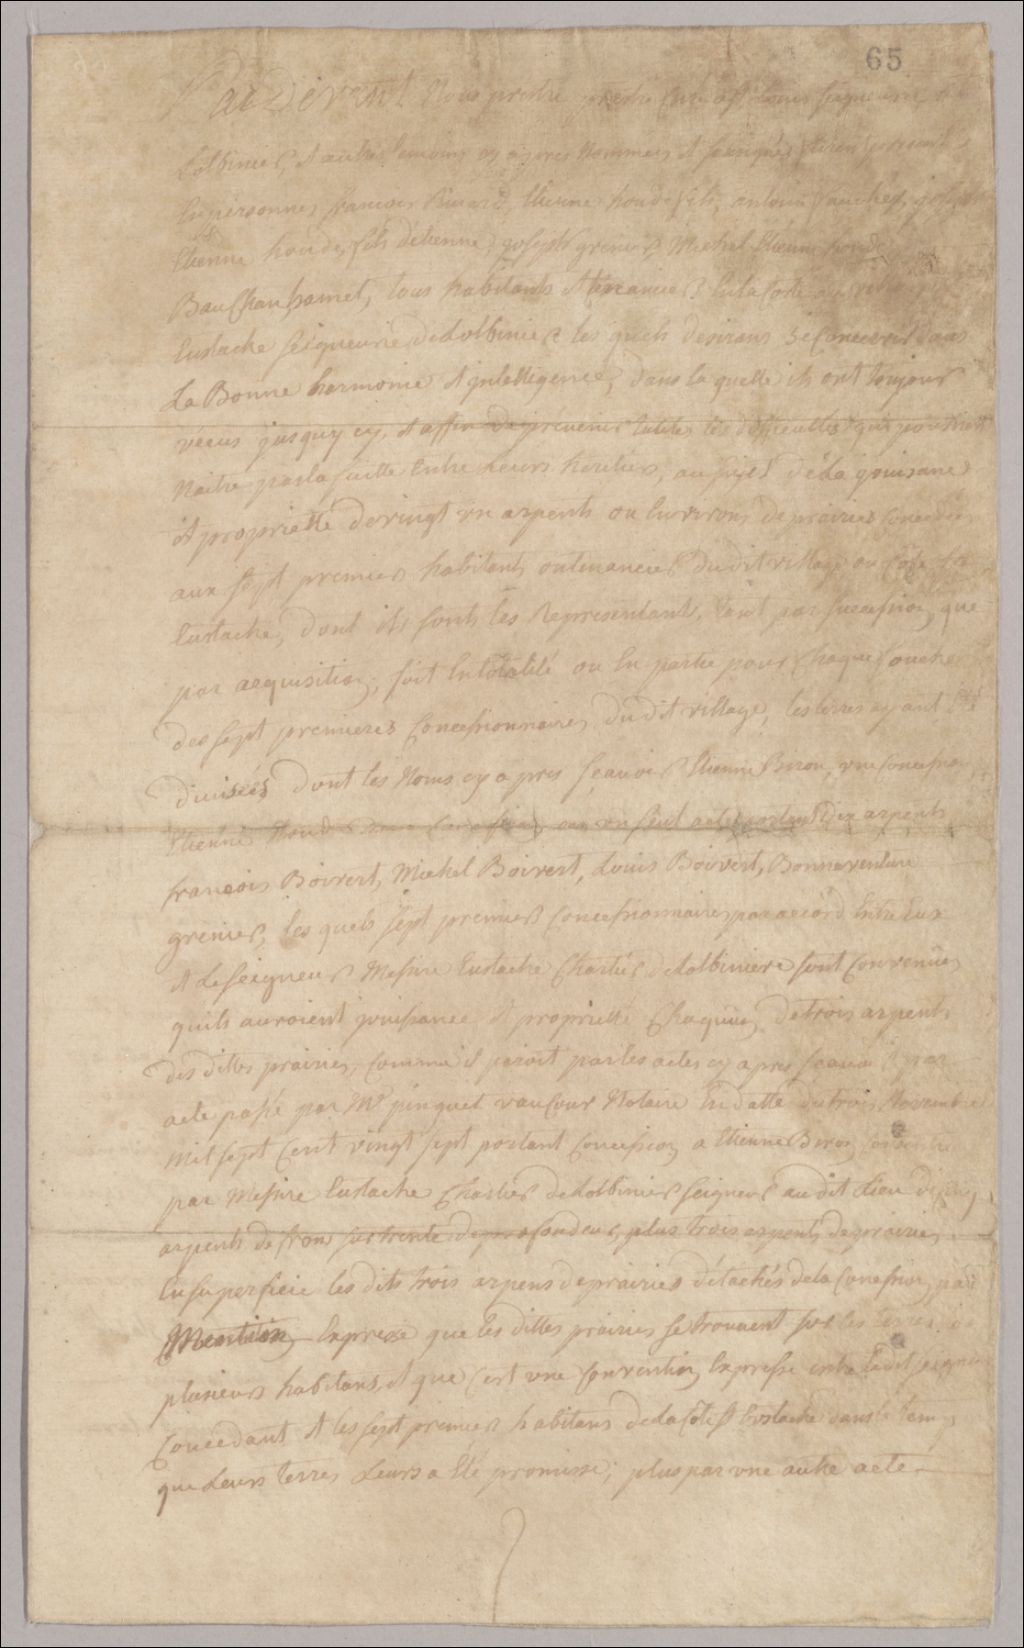 65
Par Devant Nous prestre curé de St Louis seigneurie de
Lotbinier, et autres temoins cy apres Nommés et soussignés furent present
En personnes francois Biron, Etienne houde fils, antoine faucher, joseph
Etienne houde, fils d'etienne, joseph grenier, Michel Etienne houde
Beauchan hamel, tous habitants et tenancier En la Coste ou village St
Eustache seigneurie de Lotbinier les quels desirans se Concerver dans
La Bonne harmonie et jntelligence, dans la quelle ils ont toujour
vécus jusquycy, et affin de prévenir toutes les difficultés qui pouroient
Naitre par la suitte Entre Leurs héritiers, au sujet de La jouisance
et propriette de vingt un arpents ou Environs de prairies Concedées
aux sept premier habitants ou tenancier du dit village ou Coste St
Eustache, dont ils sonts les Representant, tant par sucession, que
par acquisition, soit En totalité ou En partie pour Chaque souche
des sept premieres Concessionnaires du dit village, les terres ayant Eté
divisées dont les Noms cy apres sçavoir Etienne Biron, une Concession
Etienne Houde Deux Concession par un seul acte portant Dix arpents
francois Boivert, Michel Boivert, Louis Boivert, Bonnaventure
grenier, les quels sept premier Concessionnaires par accord Entre Eux
et Le seigneur Messire Eustache Chartier de Lotbiniere sont Convenûes
quils auroient jouissance et proprietté Chaqu'un de trois arpents
des dittes prairies, comme il paroit par les actes cy apres sçavoir par
acte passé par Mr pinguet vaucour Notaire En datte du trois Novembre
Mil sept Cent vingt sept portant Concession a Etienne Biron
par Messire Eustache Chartier de Lotbinier seigneur au dit Lieu de cinq
arpents de front sur trente de profondeur, plus trois arpents de prairies
En superficie les dits trois arpens de prairies détachés de la Concession, par
Mention Expresse que les dittes prairies se trouvent sur les terres de
plusieurs habitans, et que C'est une Convention Expresse entre Ledit seigneur
Concedant et les sept premier habitans de la Coste St Eustache dans le tems
que Leurs terres Leurs a Eté promisse; plus par une autre acte